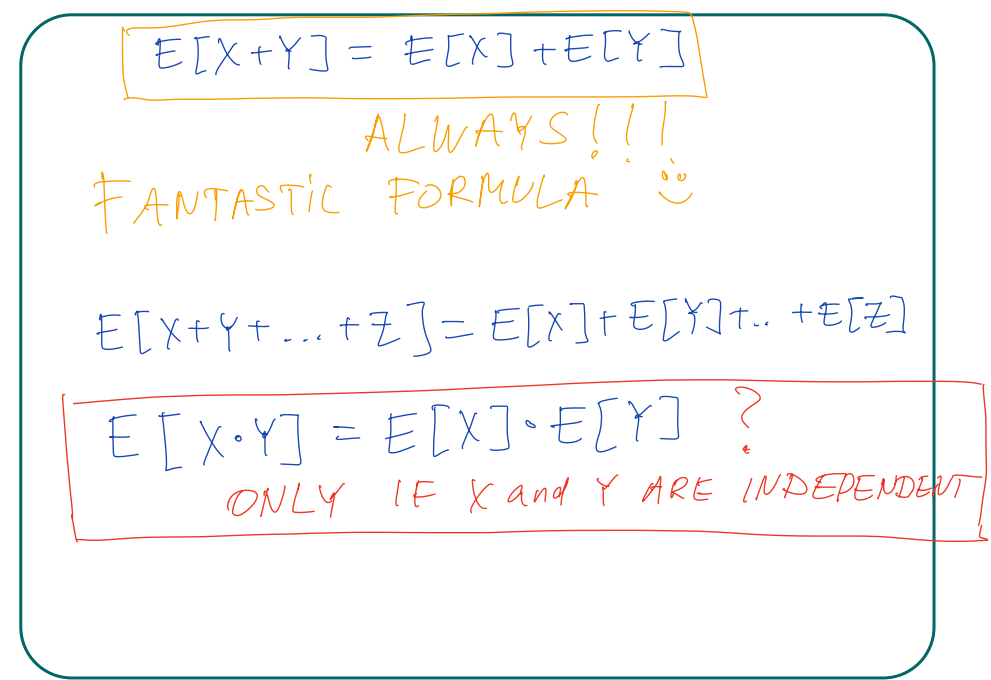 E[X+Y] = E[X] + E[Y]
ALWAYS!!!
FANTASTIC FORMULA
E[X+Y+...+Z] = E[X] + E[Y] +.. + E[Z]
E[X·Y] = E[X]·E[Y] ?
ONLY IF X and Y ARE INDEPENDENT